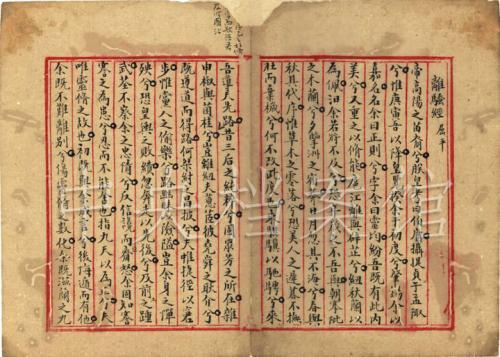 離騷經 屈平
帝高陽之苗裔兮朕皇考曰伯庸攝提貞于孟陬
兮惟庚寅吾以降皇覽揆余于初度兮肇錫余以
嘉名名余曰正則兮字余曰靈均紛吾既有此內
美兮又重之以脩能扈江離與辟芷兮紉秋蘭以
為佩汨余若將不及兮恐年歲之不吾與朝搴阰
之木蘭兮夕擥洲之宿莽日月忽其不淹兮春與
秋其代序惟草木之零落兮恐美人之遲暮不撫
壯而棄穢兮何不改此度也乘騏驥以馳騁兮來
吾道夫先路昔三后之純粹兮固眾芳之所在雜
申椒與菌桂兮豈維紉夫蕙茝彼堯舜之耿介兮
既遵道而得路何桀紂之昌披兮夫唯捷徑以窘
步惟黨人之偷樂兮路幽昧以險隘豈余身之憚
殃兮恐皇輿之敗績忽奔走以先後兮及前王之踵
武荃不察余之忠情兮反信讒而齌怒余固知謇
謇之為患兮忍而不能舍也指九天以為正兮夫
唯靈脩之故也初既與余成言兮後悔遁而有他
余既不難離別兮傷靈脩之數化余既滋蘭之九
档案馆